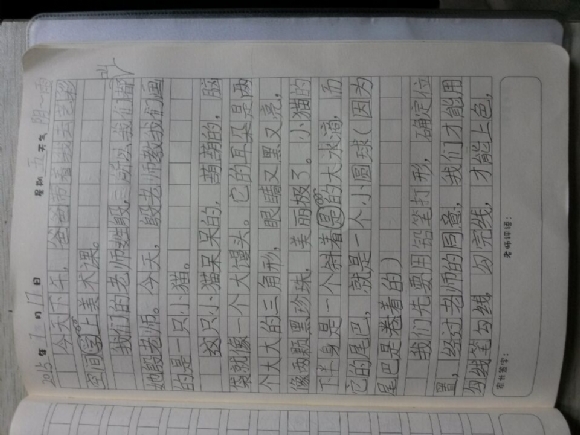 2015年7月17日 星期五 天气阴~雨
今天下午,爸爸带着我去艺教
空间室上美术课。
我们的老师姓段,所以我们管
她叫段老师。今天,段老师教我们画
的是一只小猫。
这只小猫呆呆的,萌萌的,脑
袋就像一个大馒头。它的耳朵是两
个大大的三角形,眼睛又黑又亮,
像两颗黑珍珠,美丽极了。小猫的
下半身是一个斜着的大水滴,而
它的尾巴,就是一个小圆球(因为
尾巴是卷着的)
我们先要用铅笔打形,确定位
置,经过老师的同意,我们才能用
勾线笔勾线,勾完线,才能上色,
家长签字:
老师评语: